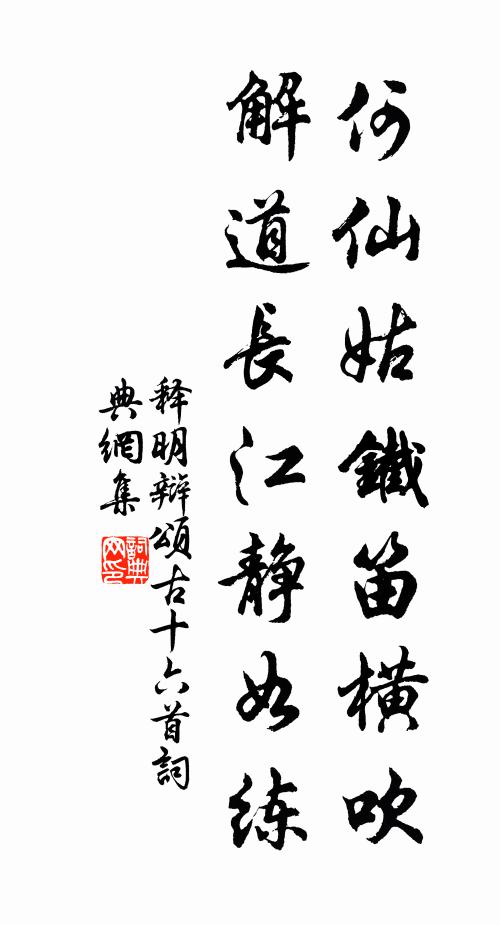 何仙姑鐵笛橫吹
解道長江静如练
释明辩頌古十六首詞
典網集
詞典网印